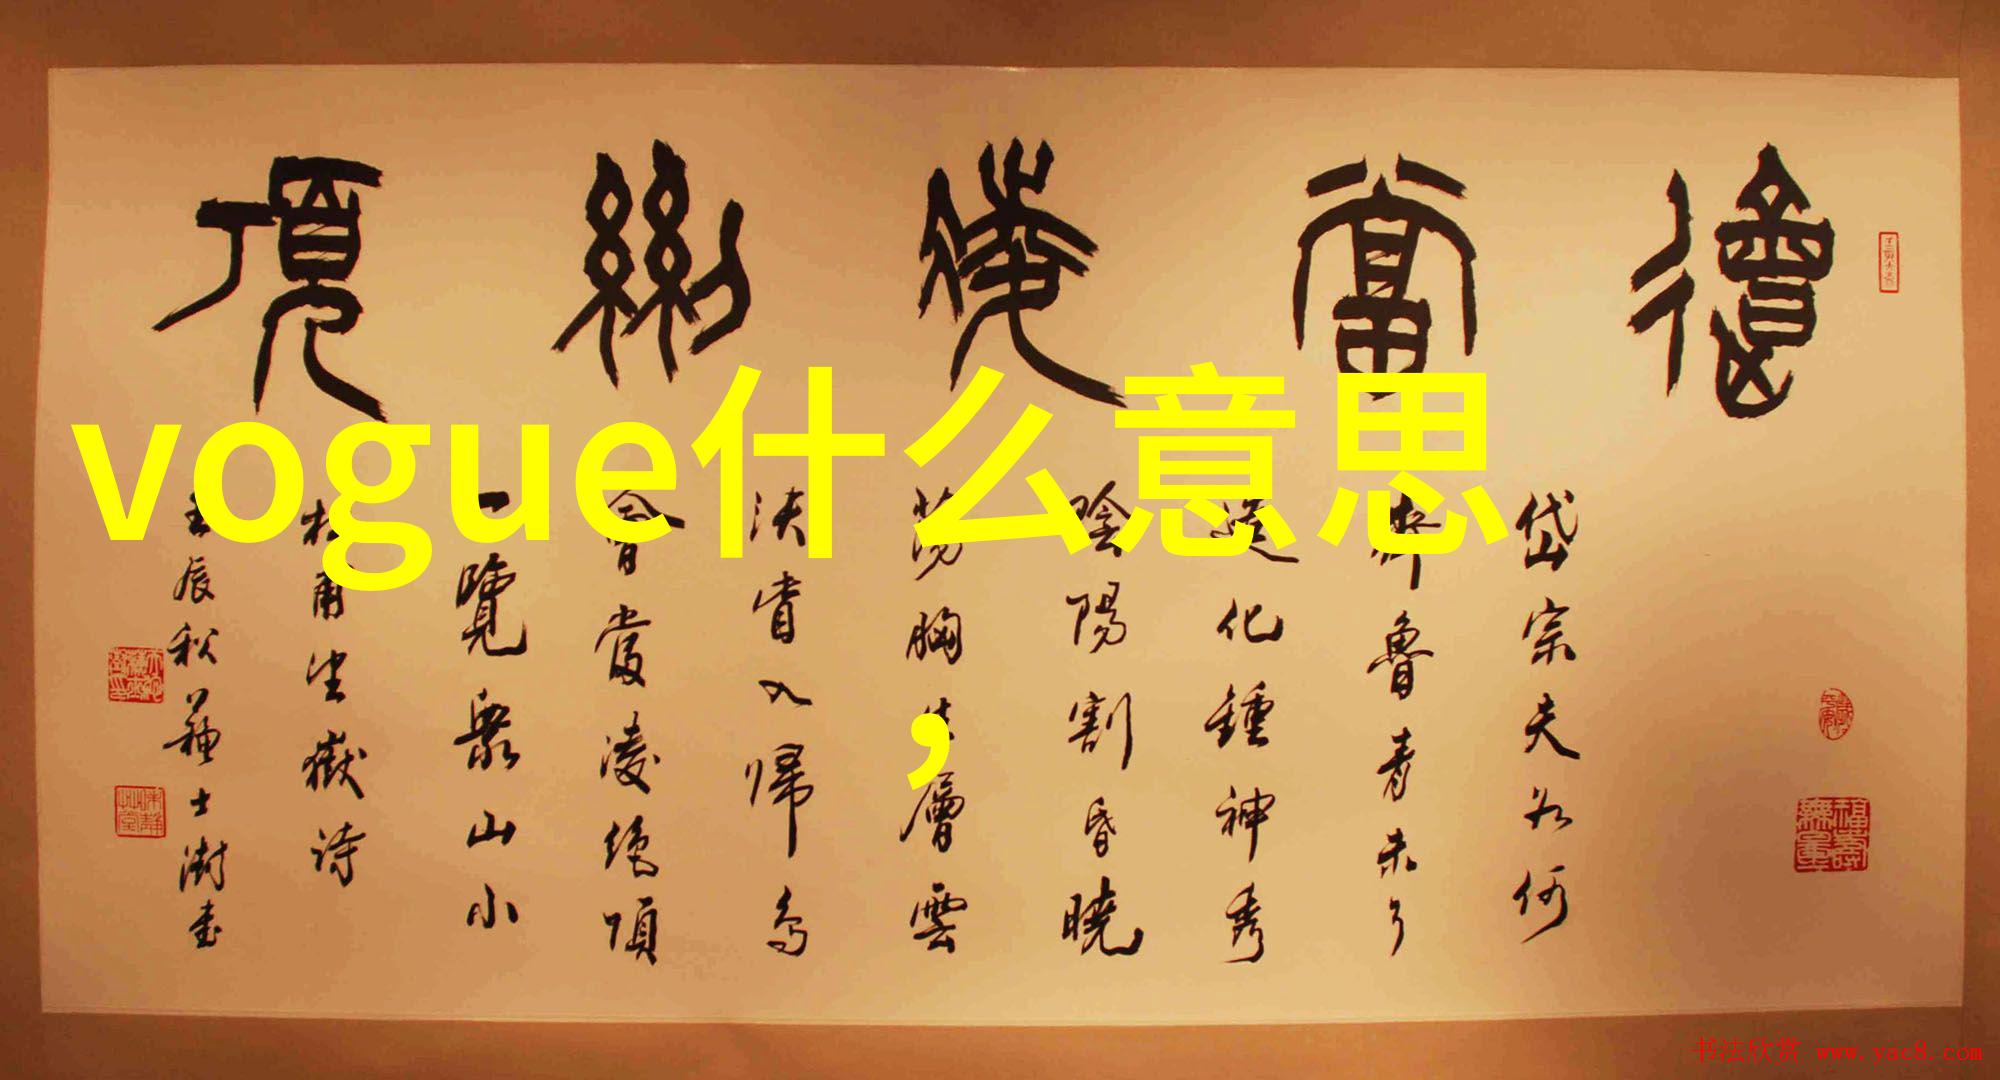 會當凌絕頂
vogue什么意思
，
岱宗夫如何
齊魯青未了
造化鍾神秀
陰陽割昏曉
蕩胸生層雲
決眥入歸鳥
會當凌絕頂
一覽眾山小
杜甫望嶽詩
壬辰秋蘇士澍書
福壽無量
书法欣赏 www.yac8.com